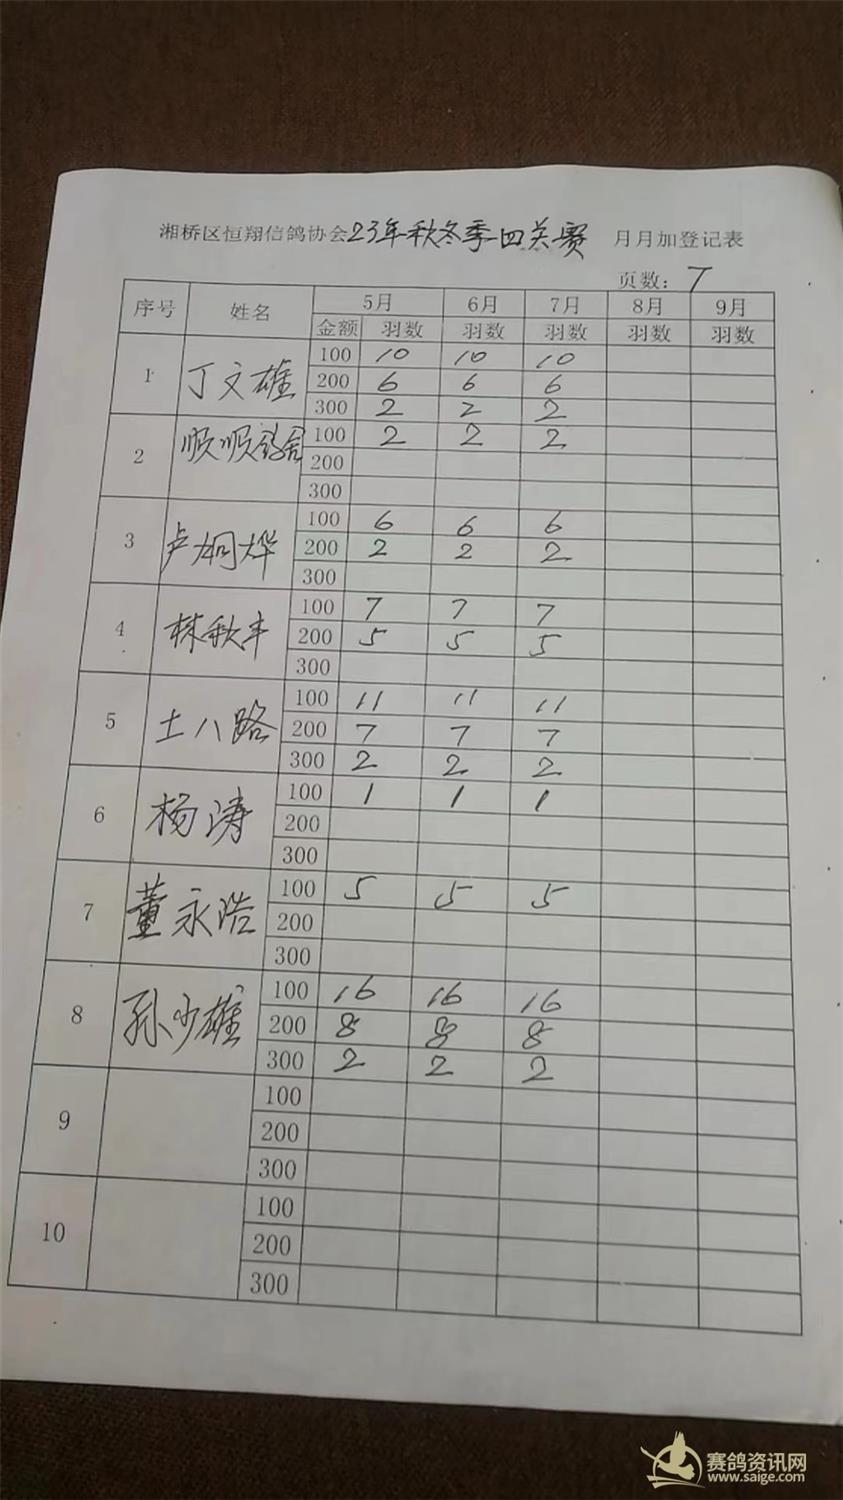 湘桥区恒翔信鸽协会23年秋冬季四关赛 月月加登记表
页数: 7
序号 姓名 5月 6月 7月 8月 9月
金额 羽数 羽数 羽数 羽数 羽数
1 丁文雄 100 10 10 10
200 6 6 6
300 2 2 2
2 顺顺鸽舍 100 2 2 2
200
300
3 卢炯烨 100 6 6 6
200 2 2 2
300
4 林秋丰 100 7 7 7
200 5 5 5
300
5 土八路 100 11 11 11
200 7 7 7
300 2 2 2
6 杨涛 100 1 1 1
200
300
7 董永浩 100 5 5 5
200
300
8 孙少雄 100 16 16 16
200 8 8 8
300 2 2 2
9 100
200
300
10 100
200
300
赛鸽资讯网
www.saige.com